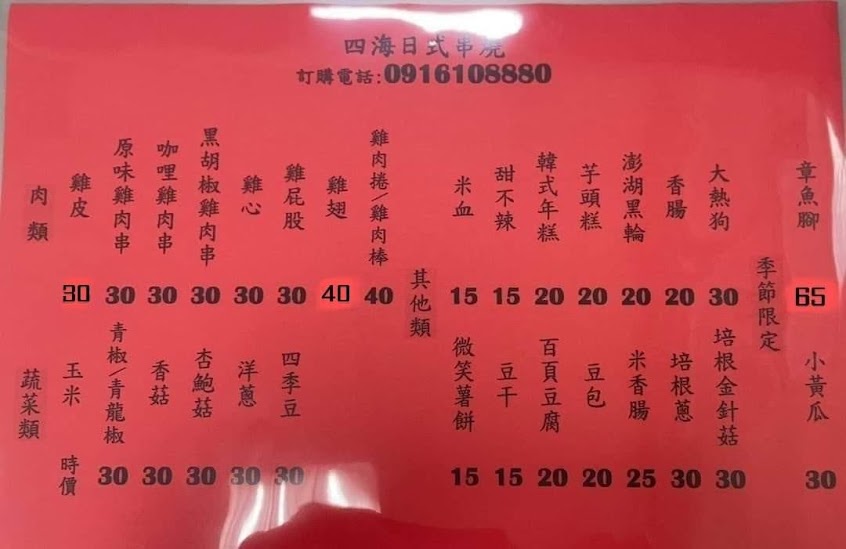 四海日式串燒
訂購電話:0916108880
肉類
雞皮 30
原味雞肉串 30
咖哩雞肉串 30
黑胡椒雞肉串 30
雞心 30
雞屁股 30
雞翅 40
雞肉捲/雞肉棒 40
蔬菜類
玉米 時價
青椒/青龍椒 30
香菇 30
杏鮑菇 30
洋蔥 30
四季豆 30
其他類
米血 15
甜不辣 15
韓式年糕 20
芋頭糕 20
澎湖黑輪 20
香腸 20
大熱狗 30
微笑薯餅 15
豆干 15
百頁豆腐 20
豆包 20
米香腸 25
培根蔥 30
培根金針菇 30
季節限定
章魚腳 65
小黃瓜 30